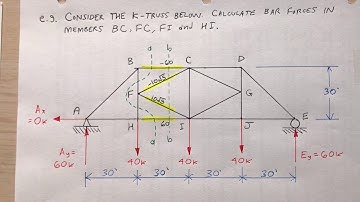 e.g. CONSIDER THE K-TRUSS BELOW. CALCULATE BAR FORCES IN
MEMBERS BC, FC, FI and HI.
a b
B -60 C D
-10√5
F G
30'
-10√5
Ax
=0k
A H 60 I J E
a b
Ay=
60k
40k 40k 40k
Ey=60k
30' 30' 30' 30'